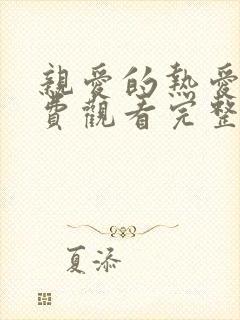 親愛的熱愛
費觀看完整
夏添